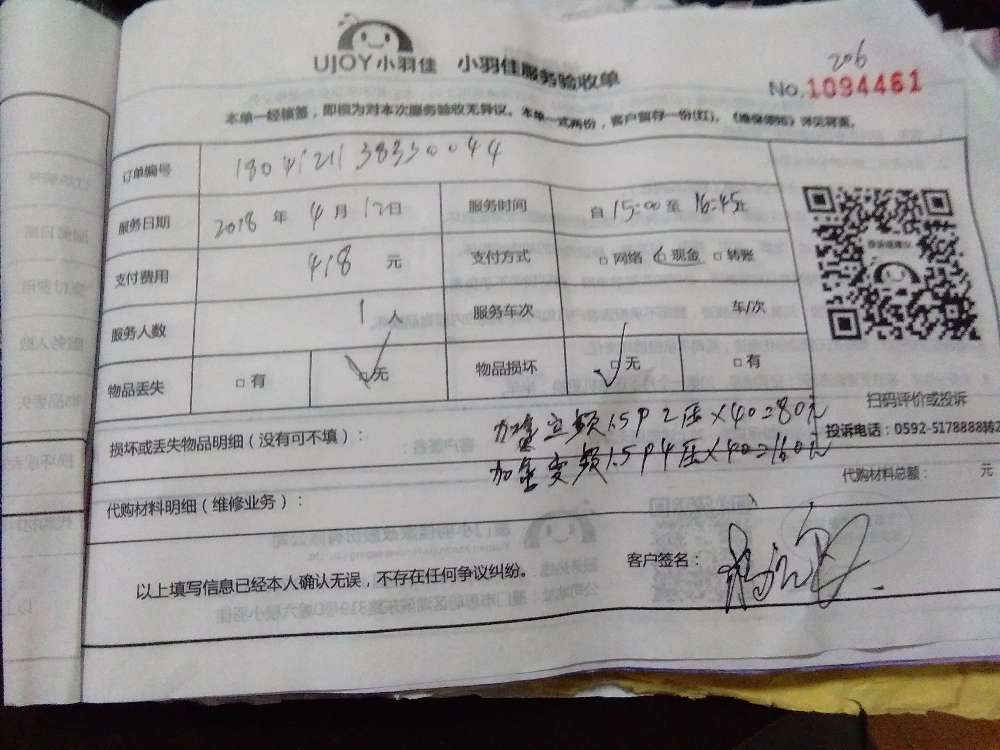 206
UJOY小羽佳 小羽佳服务验收单
No.1094461
本单一经核签，即视为对本次服务验收无异议。本单一式两份，客户留存一份(红)。
订单编号
服务日期 2018 年 4 月 12 日 服务时间 自 15:00 至 16:45止
支付费用 418 元 支付方式 □网络 □现金 □转账
服务人数 1 人 服务车次 车/次
物品丢失 □有 □无 物品损坏 □无 □有
扫码评价或投诉
投诉电话：0592-5178888转2
损坏或丢失物品明细（没有可不填）：
1.5P 2压×40=80元
加氟变频1.5P4压×40=160元
代购材料明细（维修业务）：
代购材料总额： 元
以上填写信息已经本人确认无误，不存在任何争议纠纷。
客户签名：